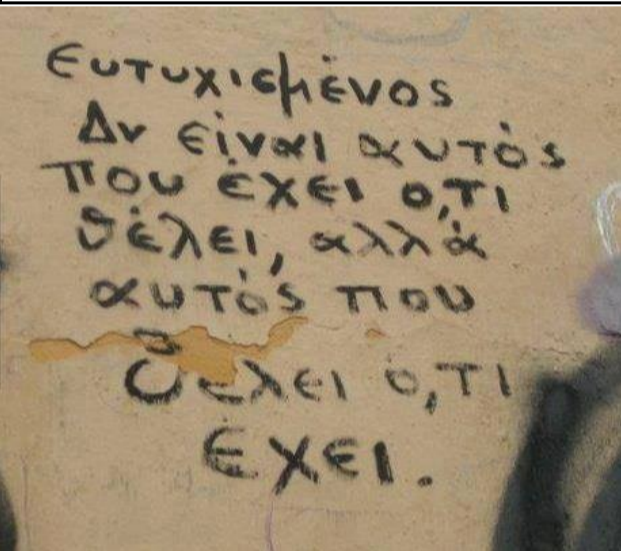 Ευτυχισμένος
Δν είναι αυτός
που έχει ό,τι
θέλει, αλλά
αυτός που
θέλει ό,τι
έχει.